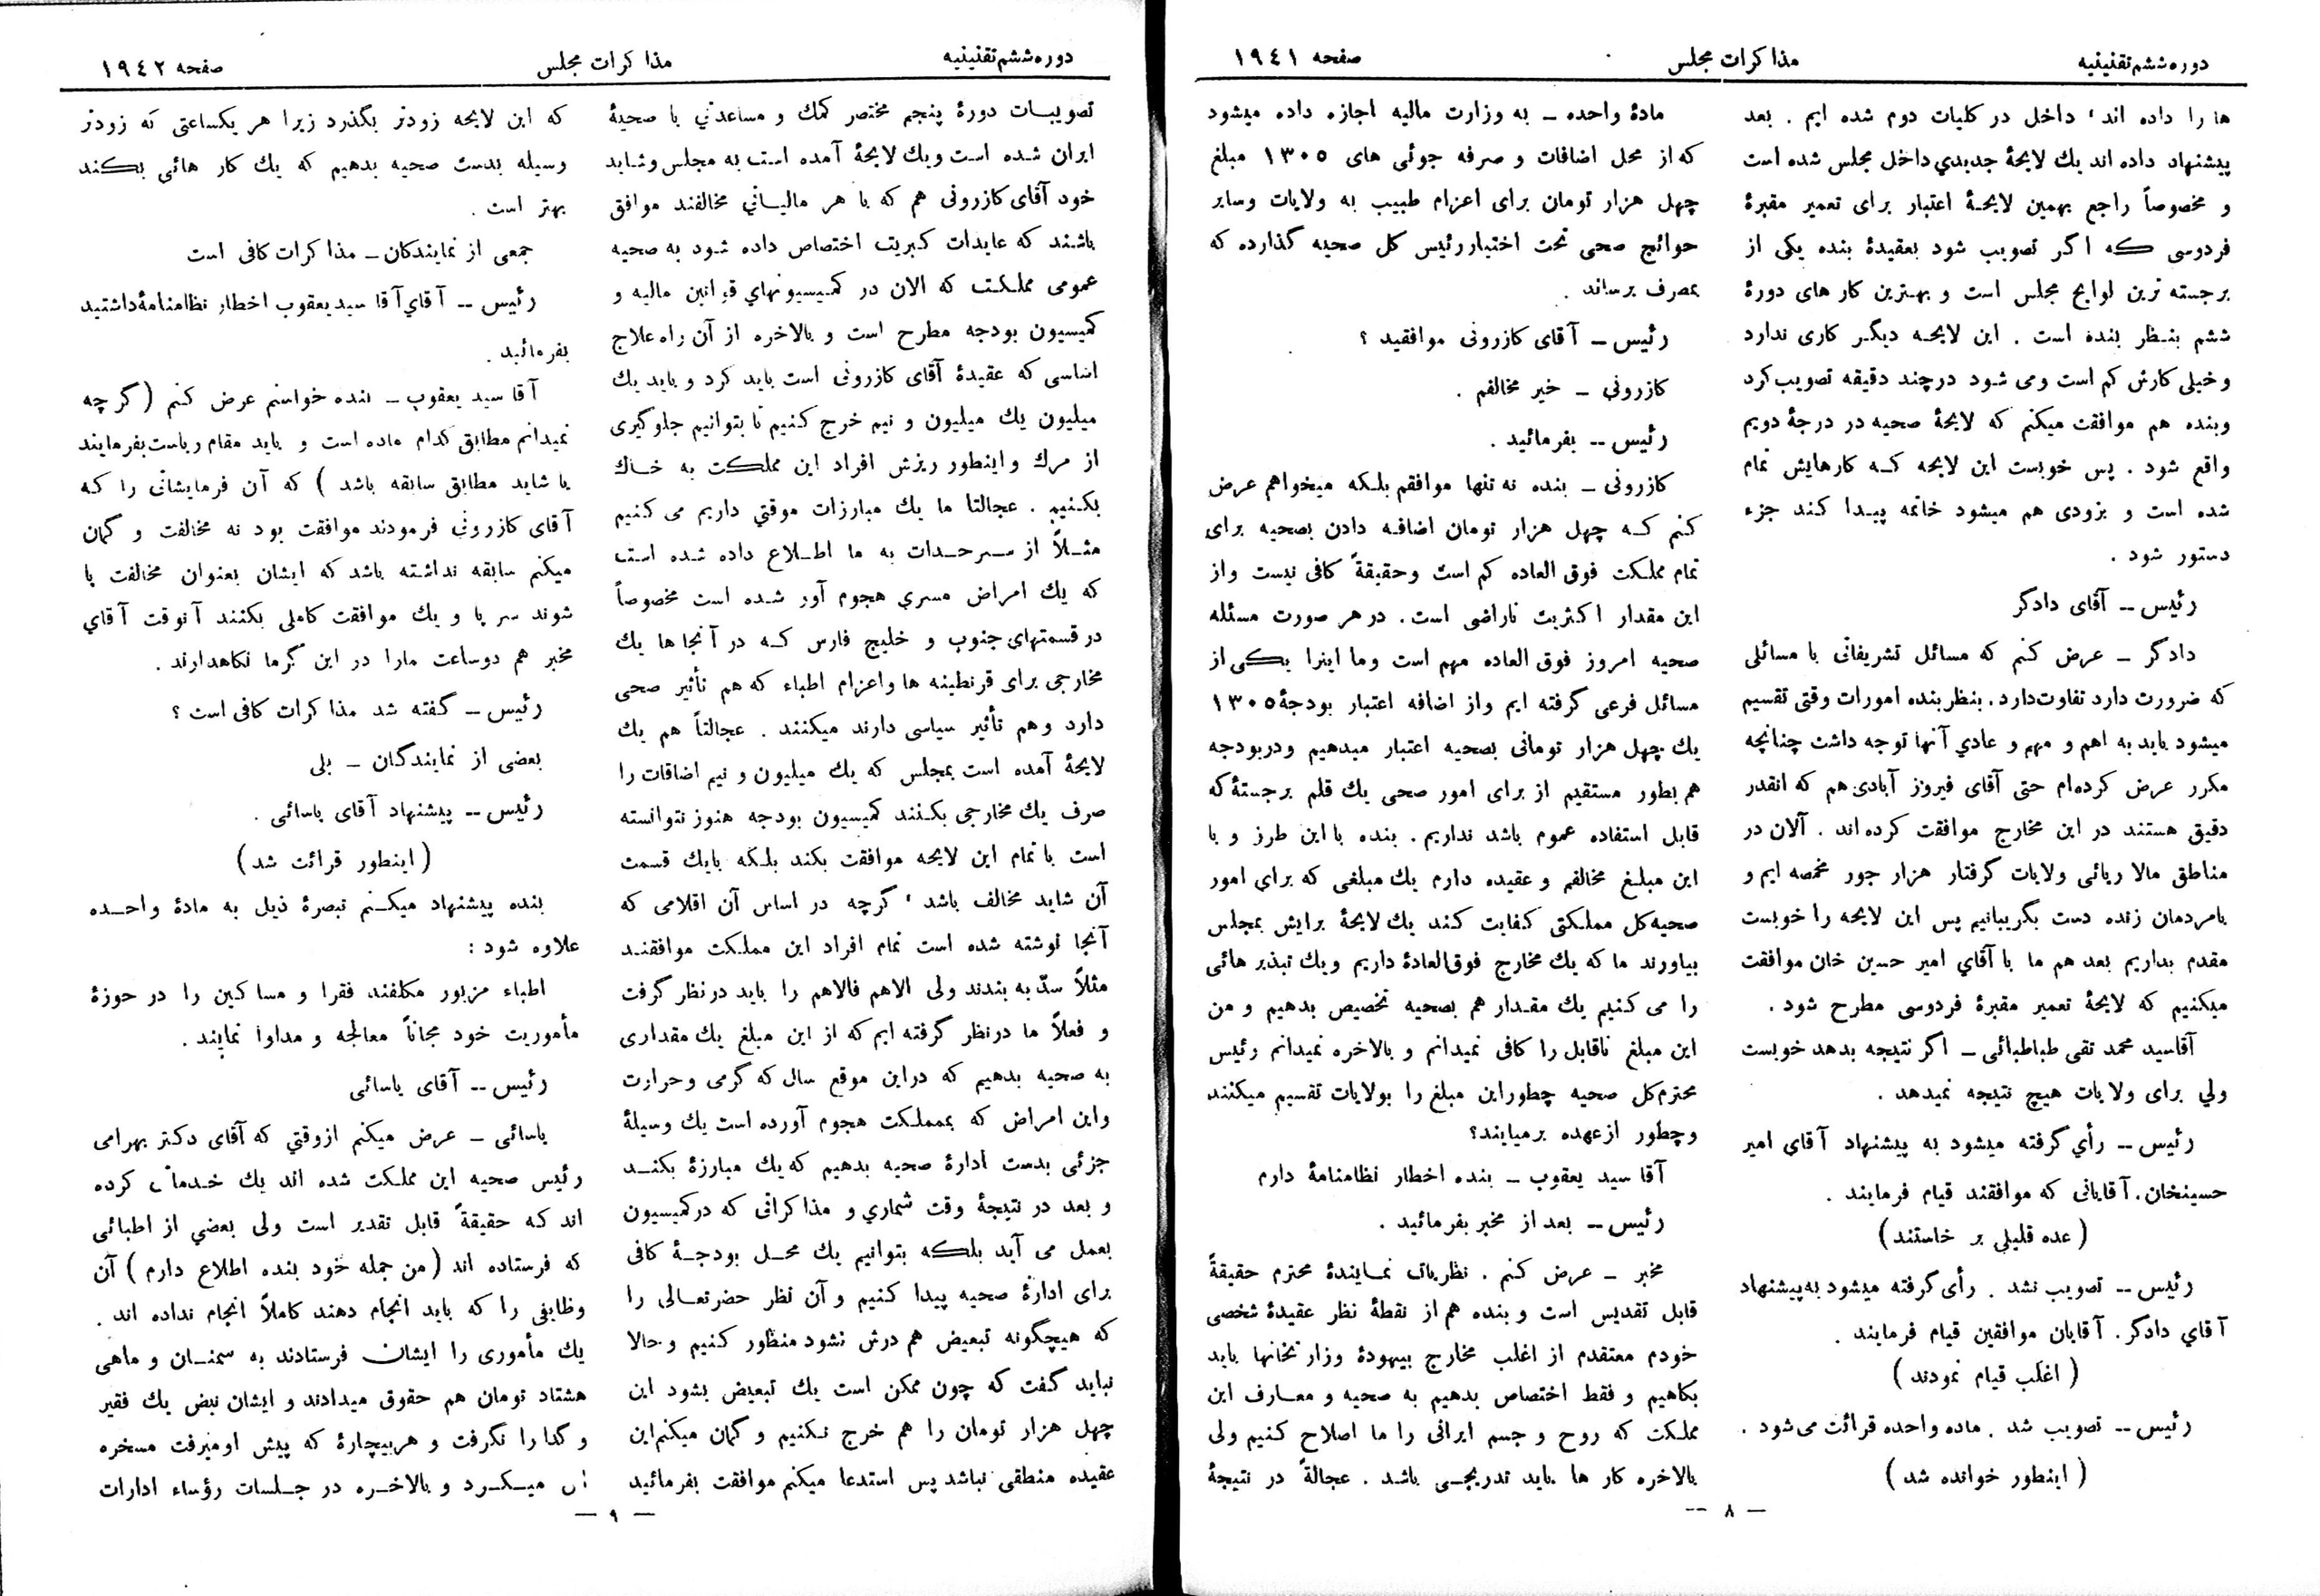 دوره ششم تقنینیه
مذاکرات مجلس
صفحه ۱۹٤۱
ها را داده اند، داخل در کلیات دوم شده ایم . بعد
پیشنهاد داده اند یك لایحهٔ جدیدي داخل مجلس شده است
و مخصوصاً راجع بهمین لایحهٔ اعتبار برای تعمیر مقبرهٔ
فردوسی که اگر تصویب شود بعقیدهٔ بنده یکی از
برجسته ترین لوایح مجلس است و بهترین کار های دورهٔ
ششم بنظر بنده است . این لایحه دیگر کاری ندارد
وخیلی کارش کم است ومی شود درچند دقیقه تصویب کرد
وبنده هم موافقت میکنم که لایحهٔ صحیه در درجهٔ دویم
واقع شود . پس خوبست این لایحه که کارهایش تمام
شده است و بزودی هم میشود خاتمه پیدا کند جزء
دستور شود .
رئیس ــ آقای دادگر
دادگر ــ عرض کنم که مسائل تشریفاتی با مسائلی
که ضرورت دارد تفاوت دارد. بنظر بنده امورات وقتی تقسیم
میشود باید به اهم و مهم و عادي آنها توجه داشت چنانچه
مکرر عرض کرده‌ام حتی آقای فیروز آبادی هم که انقدر
دقیق هستند در این مخارج موافقت کرده اند . آلان در
مناطق مالا ریائی ولایات گرفتار هزار جور مخمصه ایم و
بامردمان زنده دست بگریبانیم پس این لایحه را خوبست
مقدم بداریم بعد هم ما با آقاي امیر حسین خان موافقت
میکنیم که لایحهٔ تعمیر مقبرهٔ فردوسی مطرح شود .
آقاسید محمد تقی طباطبائی ــ اگر نتیجه بدهد خوبست
ولي برای ولایات هیچ نتیجه نمیدهد .
رئیس ــ رأي گرفته میشود به پیشنهاد آقای امیر
حسینخان. آقایانی که موافقند قیام فرمایند .
( عده قلیلی بر خاستند )
رئیس ــ تصویب نشد . رأی گرفته میشود به پیشنهاد
آقاي دادگر. آقایان موافقین قیام فرمایند .
( اغلب قیام نمودند )
رئیس ــ تصویب شد . ماده واحده قرائت می شود .
( اینطور خوانده شد )
مادهٔ واحده ــ به وزارت مالیه اجازه داده میشود
که از محل اضافات و صرفه جوئی های ۱۳۰٥ مبلغ
چهل هزار تومان برای اعزام طبیب به ولایات وسایر
حوائج صحی تحت اختیار رئیس کل صحیه گذارده که
بمصرف برساند .
رئیس ــ آقای کازرونی موافقید ؟
کازروني ــ خیر مخالفم .
رئیس ــ بفرمائید .
کازرونی ــ بنده نه تنها موافقم بلکه میخواهم عرض
کنم که چهل هزار تومان اضافه دادن بصحیه برای
تمام مملکت فوق العاده کم است وحقیقةً کافی نیست واز
این مقدار اکثریت ناراضی است. درهر صورت مسئله
صحیه امروز فوق العاده مهم است وما اینرا یکی از
مسائل فرعی گرفته ایم واز اضافه اعتبار بودجهٔ ۱۳۰٥
یك چهل هزار تومانی بصحیه اعتبار میدهیم ودربودجه
هم بطور مستقیم از برای امور صحی یك قلم برجستهٔ که
قابل استفاده عموم باشد نداریم. بنده با این طرز و با
این مبلغ مخالفم و عقیده دارم یك مبلغی که برای امور
صحیه کل مملکتی کفایت کند یك لایحهٔ برایش بمجلس
بیاورند ما که یك مخارج فوق‌العادهٔ داریم ویك تبذیر هائی
را می کنیم یك مقدار هم بصحیه تخصیص بدهیم و من
این مبلغ ناقابل را کافی نمیدانم و بالاخره نمیدانم رئیس
محترم کل صحیه چطور این مبلغ را بولایات تقسیم میکنند
وچطور ازعهده برمیایند؟
آقا سید یعقوب ــ بنده اخطار نظامنامهٔ دارم
رئیس ــ بعد از مخبر بفرمائید .
مخبر ــ عرض کنم . نظریات نمایندهٔ محترم حقیقةً
قابل تقدیس است و بنده هم از نقطهٔ نظر عقیدهٔ شخصی
خودم معتقدم از اغلب مخارج بیهودهٔ وزارتخانها باید
بکاهیم و فقط اختصاص بدهیم به صحیه و معارف این
مملکت که روح و جسم ایرانی را ما اصلاح کنیم ولی
بالاخره کار ها باید تدریجی باشد . عجالةً در نتیجهٔ
ــ ۸ ــ
دوره ششم تقنینیه
مذاکرات مجلس
صفحه ۱۹٤۲
تصویبات دورهٔ پنجم مختصر کمك و مساعدتي با صحیهٔ
ایران شده است ویك لایحهٔ آمده است به مجلس وشاید
خود آقای کازرونی هم که با هر مالیاتي مخالفند موافق
باشند که عایدات کبریت اختصاص داده شود به صحیه
عمومی مملکت که الان در کمیسیونهاي قوانین مالیه و
کمیسیون بودجه مطرح است و بالاخره از آن راه علاج
اساسی که عقیدهٔ آقای کازرونی است باید کرد و باید یك
میلیون یك میلیون و نیم خرج کنیم تا بتوانیم جلوگیری
از مرك و اینطور ریزش افراد این مملکت به خاك
بکنیم . عجالتا ما یك مبارزات موقتي داریم می کنیم
مثلاً از سرحدات به ما اطلاع داده شده است
که یك امراض مسري هجوم آور شده است مخصوصاً
در قسمتهای جنوب و خلیج فارس که در آنجا ها یك
مخارجی برای قرنطینه ها واعزام اطباء که هم تأثیر صحی
دارد وهم تأثیر سیاسی دارند میکنند . عجالتاً هم یك
لایحهٔ آمده است بمجلس که یك میلیون و نیم اضافات را
صرف یك مخارجی بکنند کمیسیون بودجه هنوز نتوانسته
است با تمام این لایحه موافقت بکند بلکه بایك قسمت
آن شاید مخالف باشد، گرچه در اساس آن اقلامی که
آنجا نوشته شده است تمام افراد این مملکت موافقند
مثلاً سدّ به بندند ولی الاهم فالاهم را باید درنظر گرفت
و فعلاً ما درنظر گرفته ایم که از این مبلغ یك مقداری
به صحیه بدهیم که دراین موقع سال که گرمی وحرارت
واین امراض که بمملکت هجوم آورده است یك وسیلهٔ
جزئی بدست ادارهٔ صحیه بدهیم که یك مبارزهٔ بکند
و بعد در نتیجهٔ وقت شماري و مذاکراتی که درکمیسیون
بعمل می آید بلکه بتوانیم یك محل بودجهٔ کافی
برای ادارهٔ صحیه پیدا کنیم و آن نظر حضرتعالی را
که هیچگونه تبعیض هم درش نشود منظور کنیم و حالا
نباید گفت که چون ممکن است یك تبعیض بشود این
چهل هزار تومان را هم خرج نکنیم و گمان میکنم این
عقیده منطقی نباشد پس استدعا میکنم موافقت بفرمائید
که این لایحه زودتر بگذرد زیرا هر یکساعتی که زودتر
وسیله بدست صحیه بدهیم که یك کار هائی بکند
بهتر است .
جمعی از نمایندگان ــ مذاکرات کافی است
رئیس ــ آقاي آقا سید یعقوب اخطار نظامنامهٔ داشتید
بفرمائید .
آقا سید یعقوب ــ بنده خواستم عرض کنم ( گرچه
نمیدانم مطابق کدام ماده است و باید مقام ریاست بفرمایند
یا شاید مطابق سابقه باشد ) که آن فرمایشاتی را که
آقای کازرونی فرمودند موافقت بود نه مخالفت و گمان
میکنم سابقه نداشته باشد که ایشان بعنوان مخالفت پا
شوند سر پا و یك موافقت کاملی بکنند آنوقت آقاي
مخبر هم دوساعت مارا در این گرما نگاهدارند .
رئیس ــ گفته شد مذاکرات کافی است ؟
بعضی از نمایندگان ــ بلی
رئیس ــ پیشنهاد آقای یاسائی .
( اینطور قرائت شد )
بنده پیشنهاد میکنم تبصرهٔ ذیل به مادهٔ واحده
علاوه شود :
اطباء مزبور مکلفند فقرا و مساکین را در حوزهٔ
مأموریت خود مجاناً معالجه و مداوا نمایند .
رئیس ــ آقای یاسائی
یاسائی ــ عرض میکنم ازوقتي که آقای دکتر بهرامی
رئیس صحیه این مملکت شده اند یك خدماتی کرده
اند که حقیقةً قابل تقدیر است ولی بعضي از اطبائی
که فرستاده اند ( من جمله خود بنده اطلاع دارم ) آن
وظایفی را که باید انجام دهند کاملاً انجام نداده اند .
یك مأموری را ایشان فرستادند به سمنان و ماهی
هشتاد تومان هم حقوق میدادند و ایشان نبض یك فقیر
و گدا را نگرفت و هربیچارهٔ که پیش اومیرفت مسخره
اش میکرد و بالاخره در جلسات رؤساء ادارات
ــ ۹ ــ